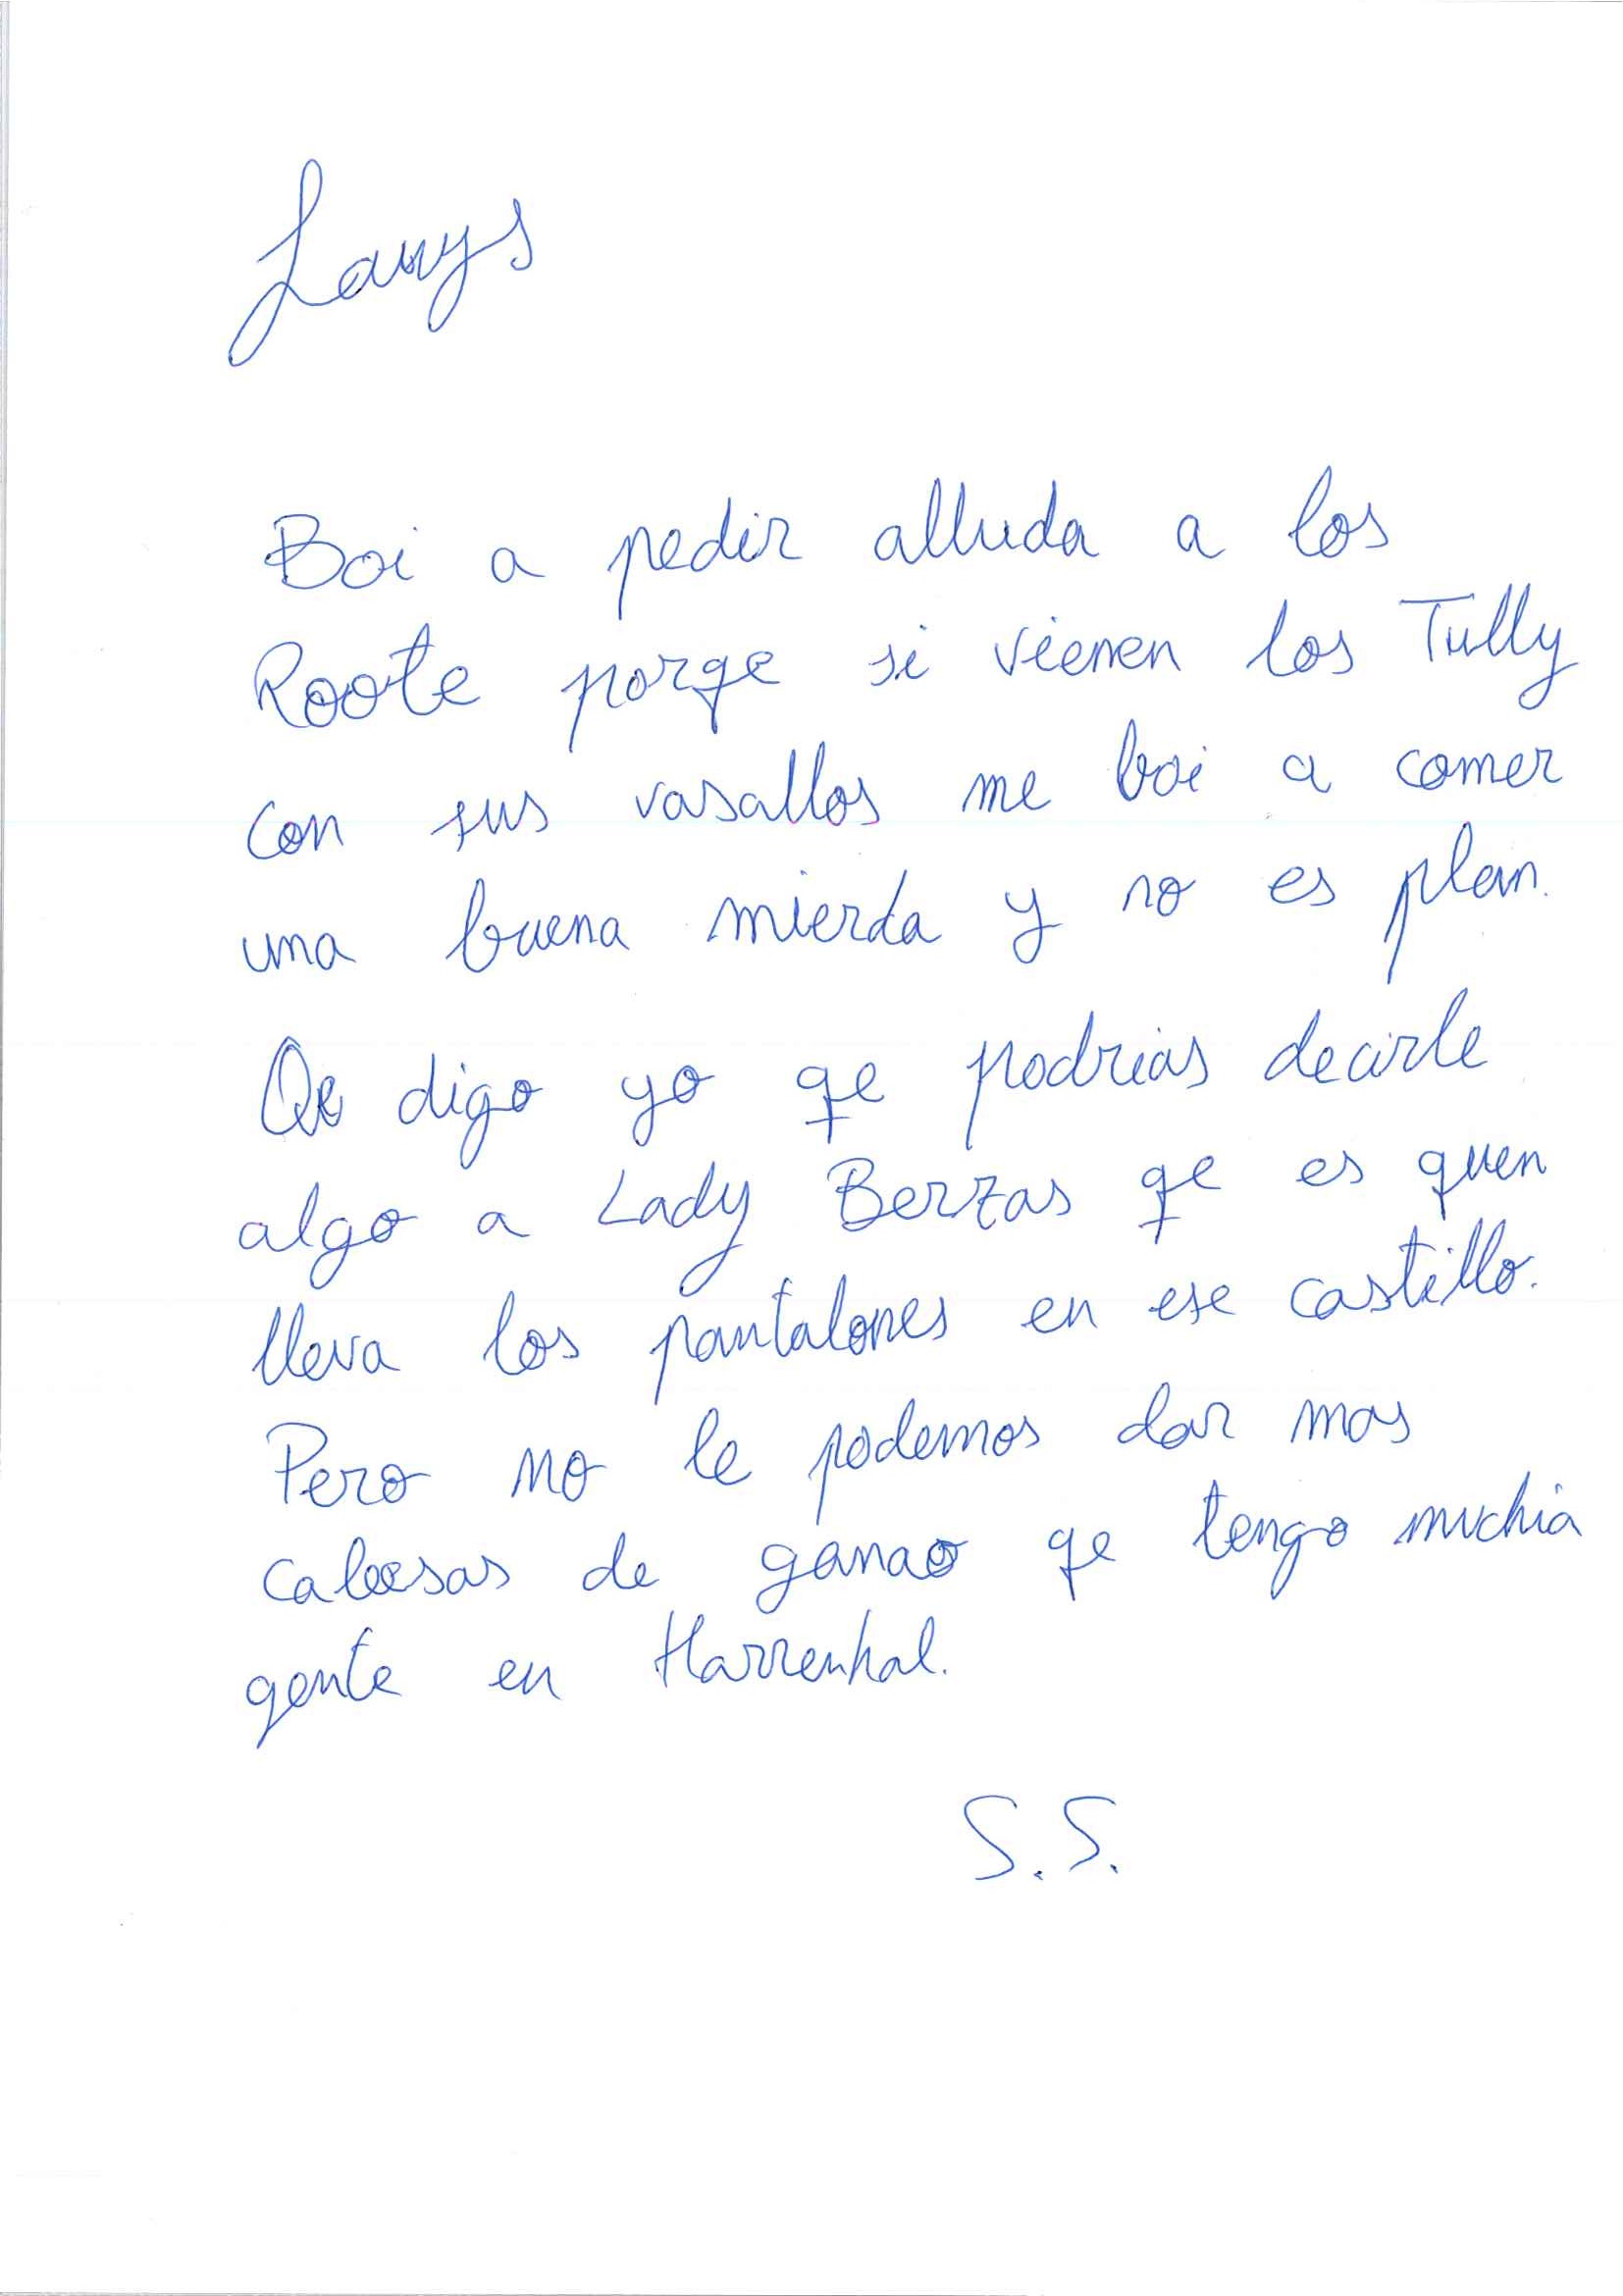 Lawys
Boi a pedir alluda a los
Roote porqe si vienen los Tully
con sus vasallos me boi a comer
una buena mierda y no es plan.
Qe digo yo qe podrias decirle
algo a Lady Berzas qe es quen
lleva los pantalones en ese castillo.
Pero no le podemos dar mas
cabesas de ganao qe tengo muchia
gente en Harrenhal.
S.S.